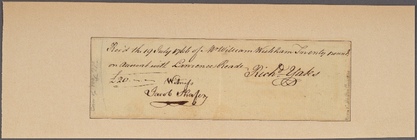 Rec'd the 19 July 1766 of Mr William Wickham Twenty pounds
on Account with Lawrence Reade
£20 Richd Yates
Witness
Jacob